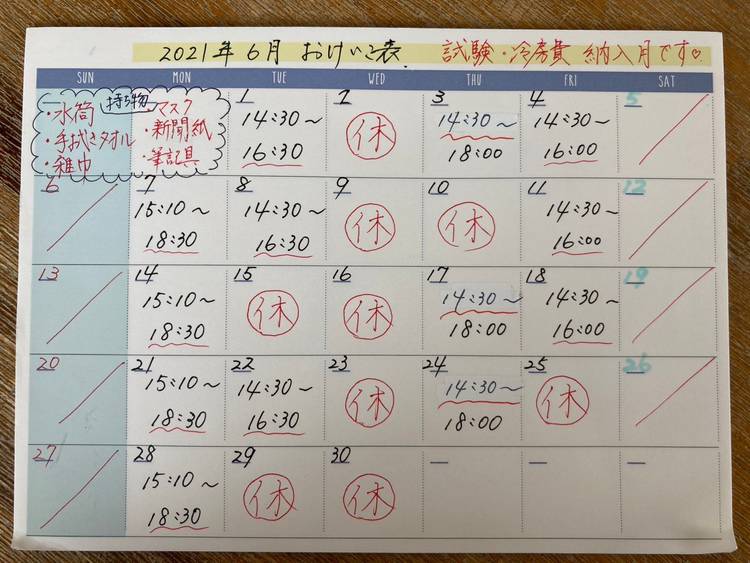 2021年6月 おけいこ表 試験・冷房費 納入月です♡
SUN MON TUE WED THU FRI SAT
持ち物
・水筒 ・マスク
・手拭きタオル ・新聞紙
・雑巾 ・筆記具
1 2 3 4 5
14:30～ 休 14:30～ 14:30～
16:30 18:00 16:00
6 7 8 9 10 11 12
15:10～ 14:30～ 休 休 14:30～
18:30 16:30 16:00
13 14 15 16 17 18 19
15:10～ 休 休 14:30～ 14:30～
18:30 18:00 16:00
20 21 22 23 24 25 26
15:10～ 14:30～ 休 14:30～ 休
18:30 16:30 18:00
27 28 29 30
15:10～ 休 休
18:30